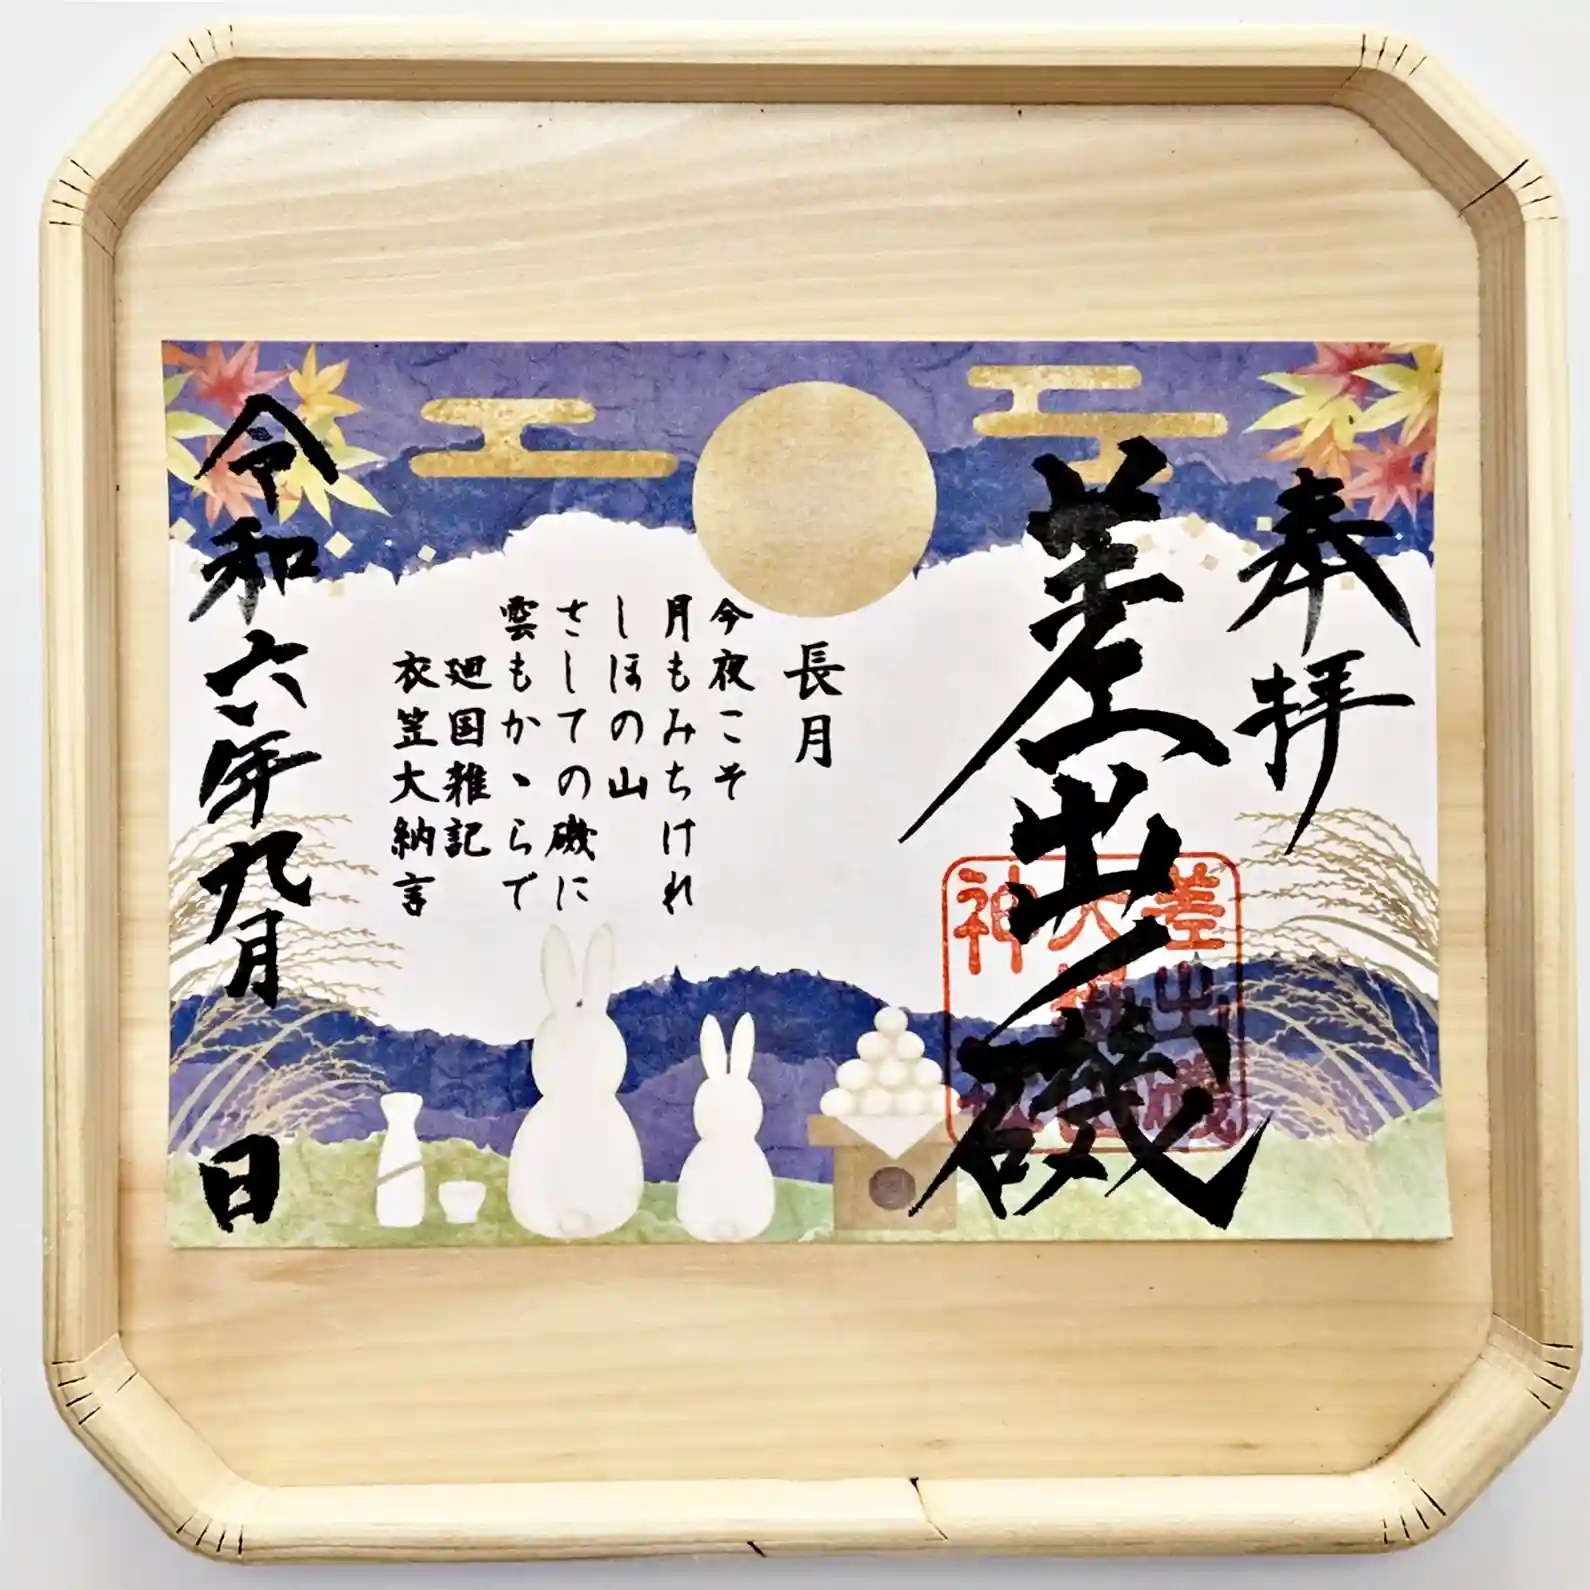 奉拝
差出磯
差出磯
長月
今夜こそ
月もみちけれ
しほの山
さしての磯に
雲もかゝらで
廻国雑記
衣笠大納言
令和六年九月 日